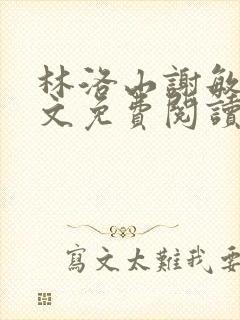 林洛山謝敏
文免費閱讀
寫文太難我要